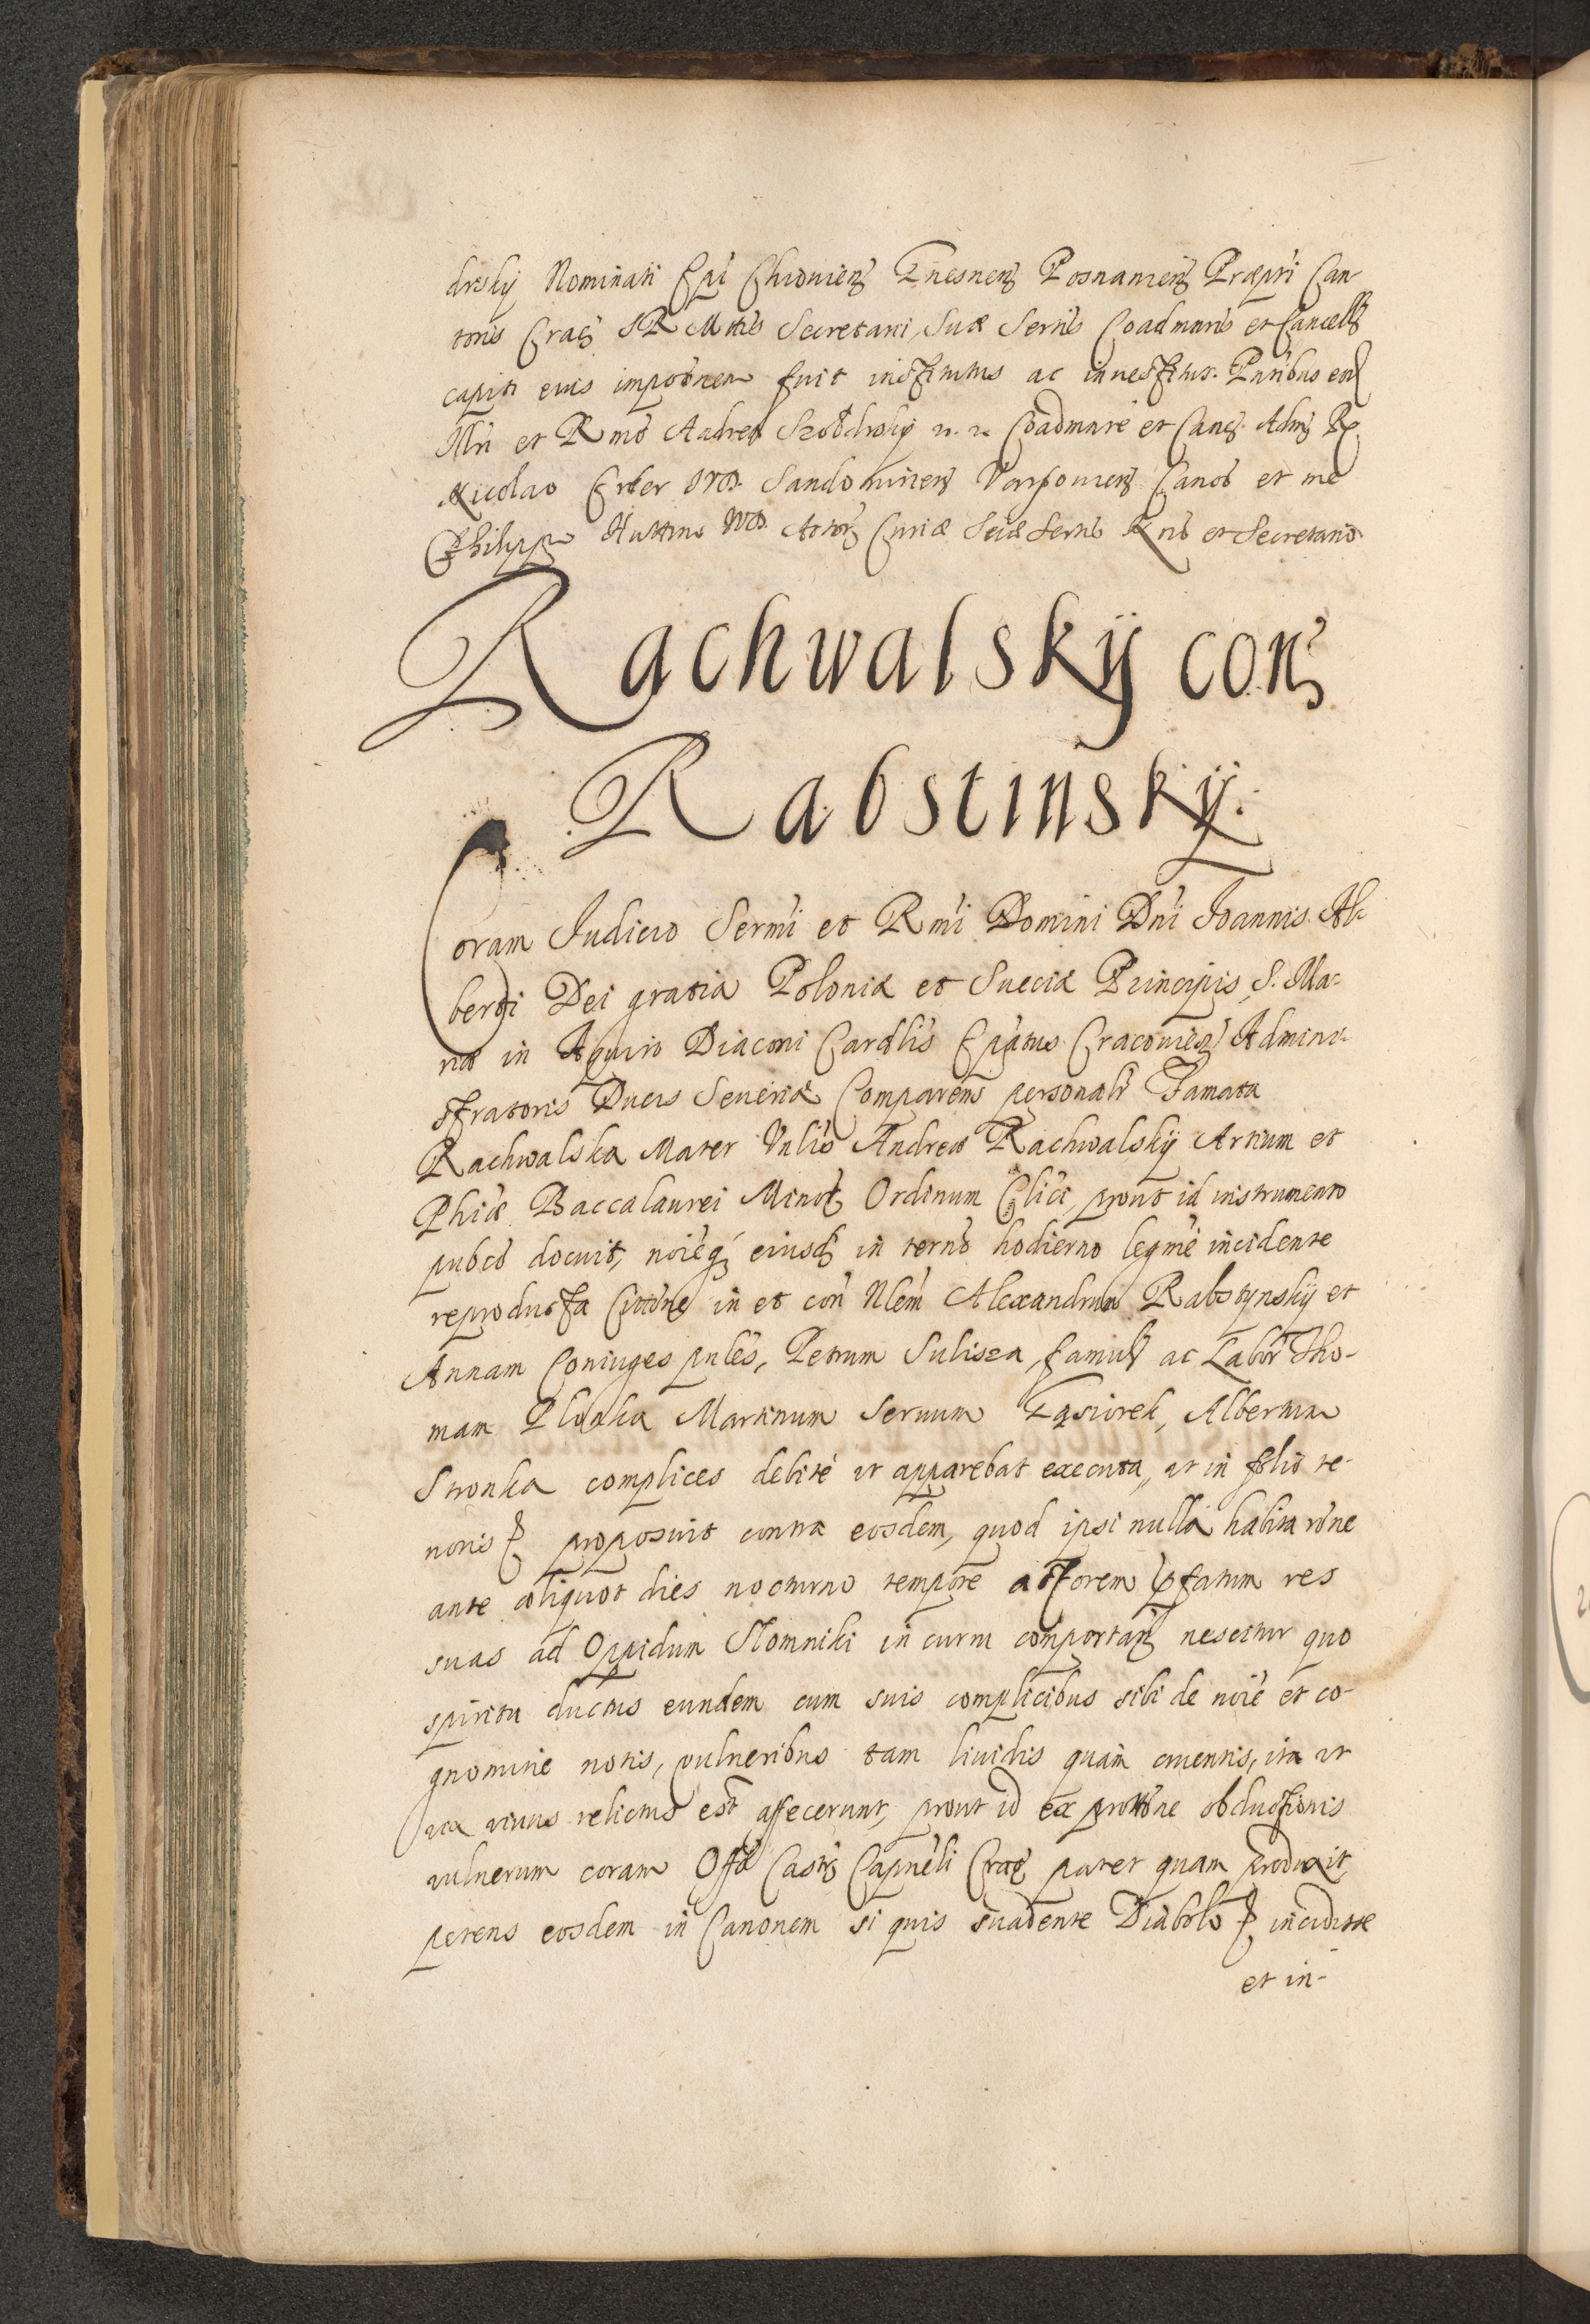 drsky Nominati Epi Chiovien Gnesnen Posnanien Præpti Can-
toris Crac SRMttis Secretarii, Suæ Sertis Coadmnris et Cancell
capiti eius impotnem fuit institutus ac investitus. Pntibus eod
Illri et Rmo Andrea Szołdrsky n. n. Coadmnre et Canc. Adm R
Nicolao Erler Sandomirien Varsovien Canos et me
Philippo Huttini Actor Curiæ Suæ Sertis Nris et Secretario
Rachwalskÿ con
Rabstinskÿ.
Coram Iudicio Sermi et Rmi Domini Dni Joannis Al-
berti Dei gratia Poloniæ et Sueciæ Principis, S. Ma-
riæ in Aquiro Diaconi Cardlis Epatus Cracovien Admini-
stratoris Ducis Severiæ Comparens personalr Famata
Rachwalska Mater Vnlis Andreæ Rachwalskÿ Artium et
Phiæ Baccalaurei Minor Ordinum Clici, prout id instrumento
pubco docuit, noieq eiusd in terno hodierno legme incidente
reproducta Cittone in et con Nlem Alexandrum Rabstynskÿ et
Annam Coniuges pnles, Petrum Sulisza, famul ac Labor Tho-
mam Plonka Martinum Servum Gąsiorek, Albertum
Stronka complices debite ut apparebat executa, ut in folio te-
noris proposuit contra eosdem, quod ipsi nulla habita rone
ante aliquot dies nocturno tempore actorem pfatum res
suas ad Oppidum Słomniki in curru comportan nescitur quo
spiritu ductus eundem cum suis complicibus sibi de noie et co-
gnomine notis, vulneribus tam lividis quam cruentis, ita ut
vix vivus relictus est affecerunt, prout id ex prottone obductionis
vulnerum coram Offo Castr Capneli Crac patet quam produxit,
petens eosdem in Canonem si quis suadente Diabolo incidisse
et in-